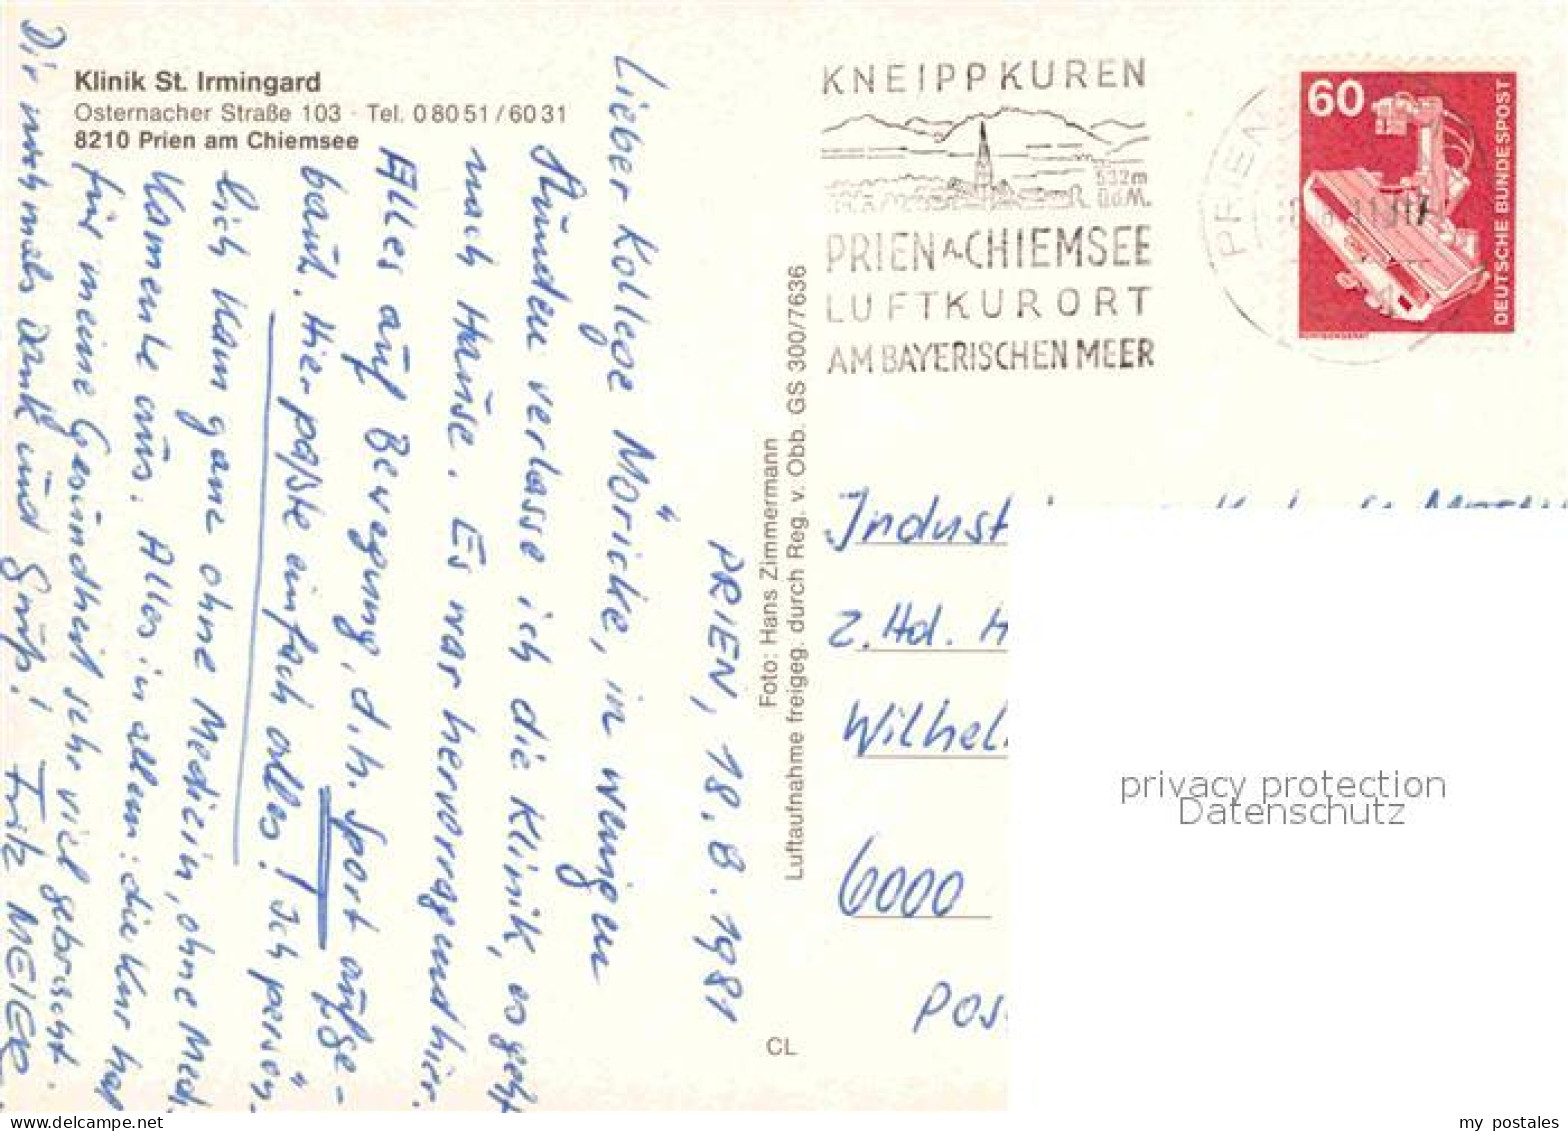 Klinik St. Irmingard
Osternacher Straße 103 · Tel. 0 80 51 / 60 31
8210 Prien am Chiemsee
PRIEN, 18.8.1981
Lieber Kollege Möricke, in wenigen
Stunden verlasse ich die Klinik, es geht
nach Hause. Es war hervorragend hier.
Alles auf Bewegung, d.h. Sport aufge-
baut. Hier paßte einfach alles! Ich persön-
lich kam ganz ohne Medizin, ohne Med.
Kamente aus. Alles in allem: die Kur hat
für meine Gesundheit sehr viel gebracht.
Dir nochmals Dank und Gruß! Fritz MEIER
Foto: Hans Zimmermann
Luftaufnahme freigeg. durch Reg. v. Obb. GS 300/7636
CL
KNEIPPKUREN
532m
ü.d.M.
PRIEN A. CHIEMSEE
LUFTKURORT
AM BAYERISCHEN MEER
PRIEN
60
DEUTSCHE BUNDESPOST
Indust
z. Hd. H
Wilhel
6000
Pos
privacy protection
Datenschutz
my postales